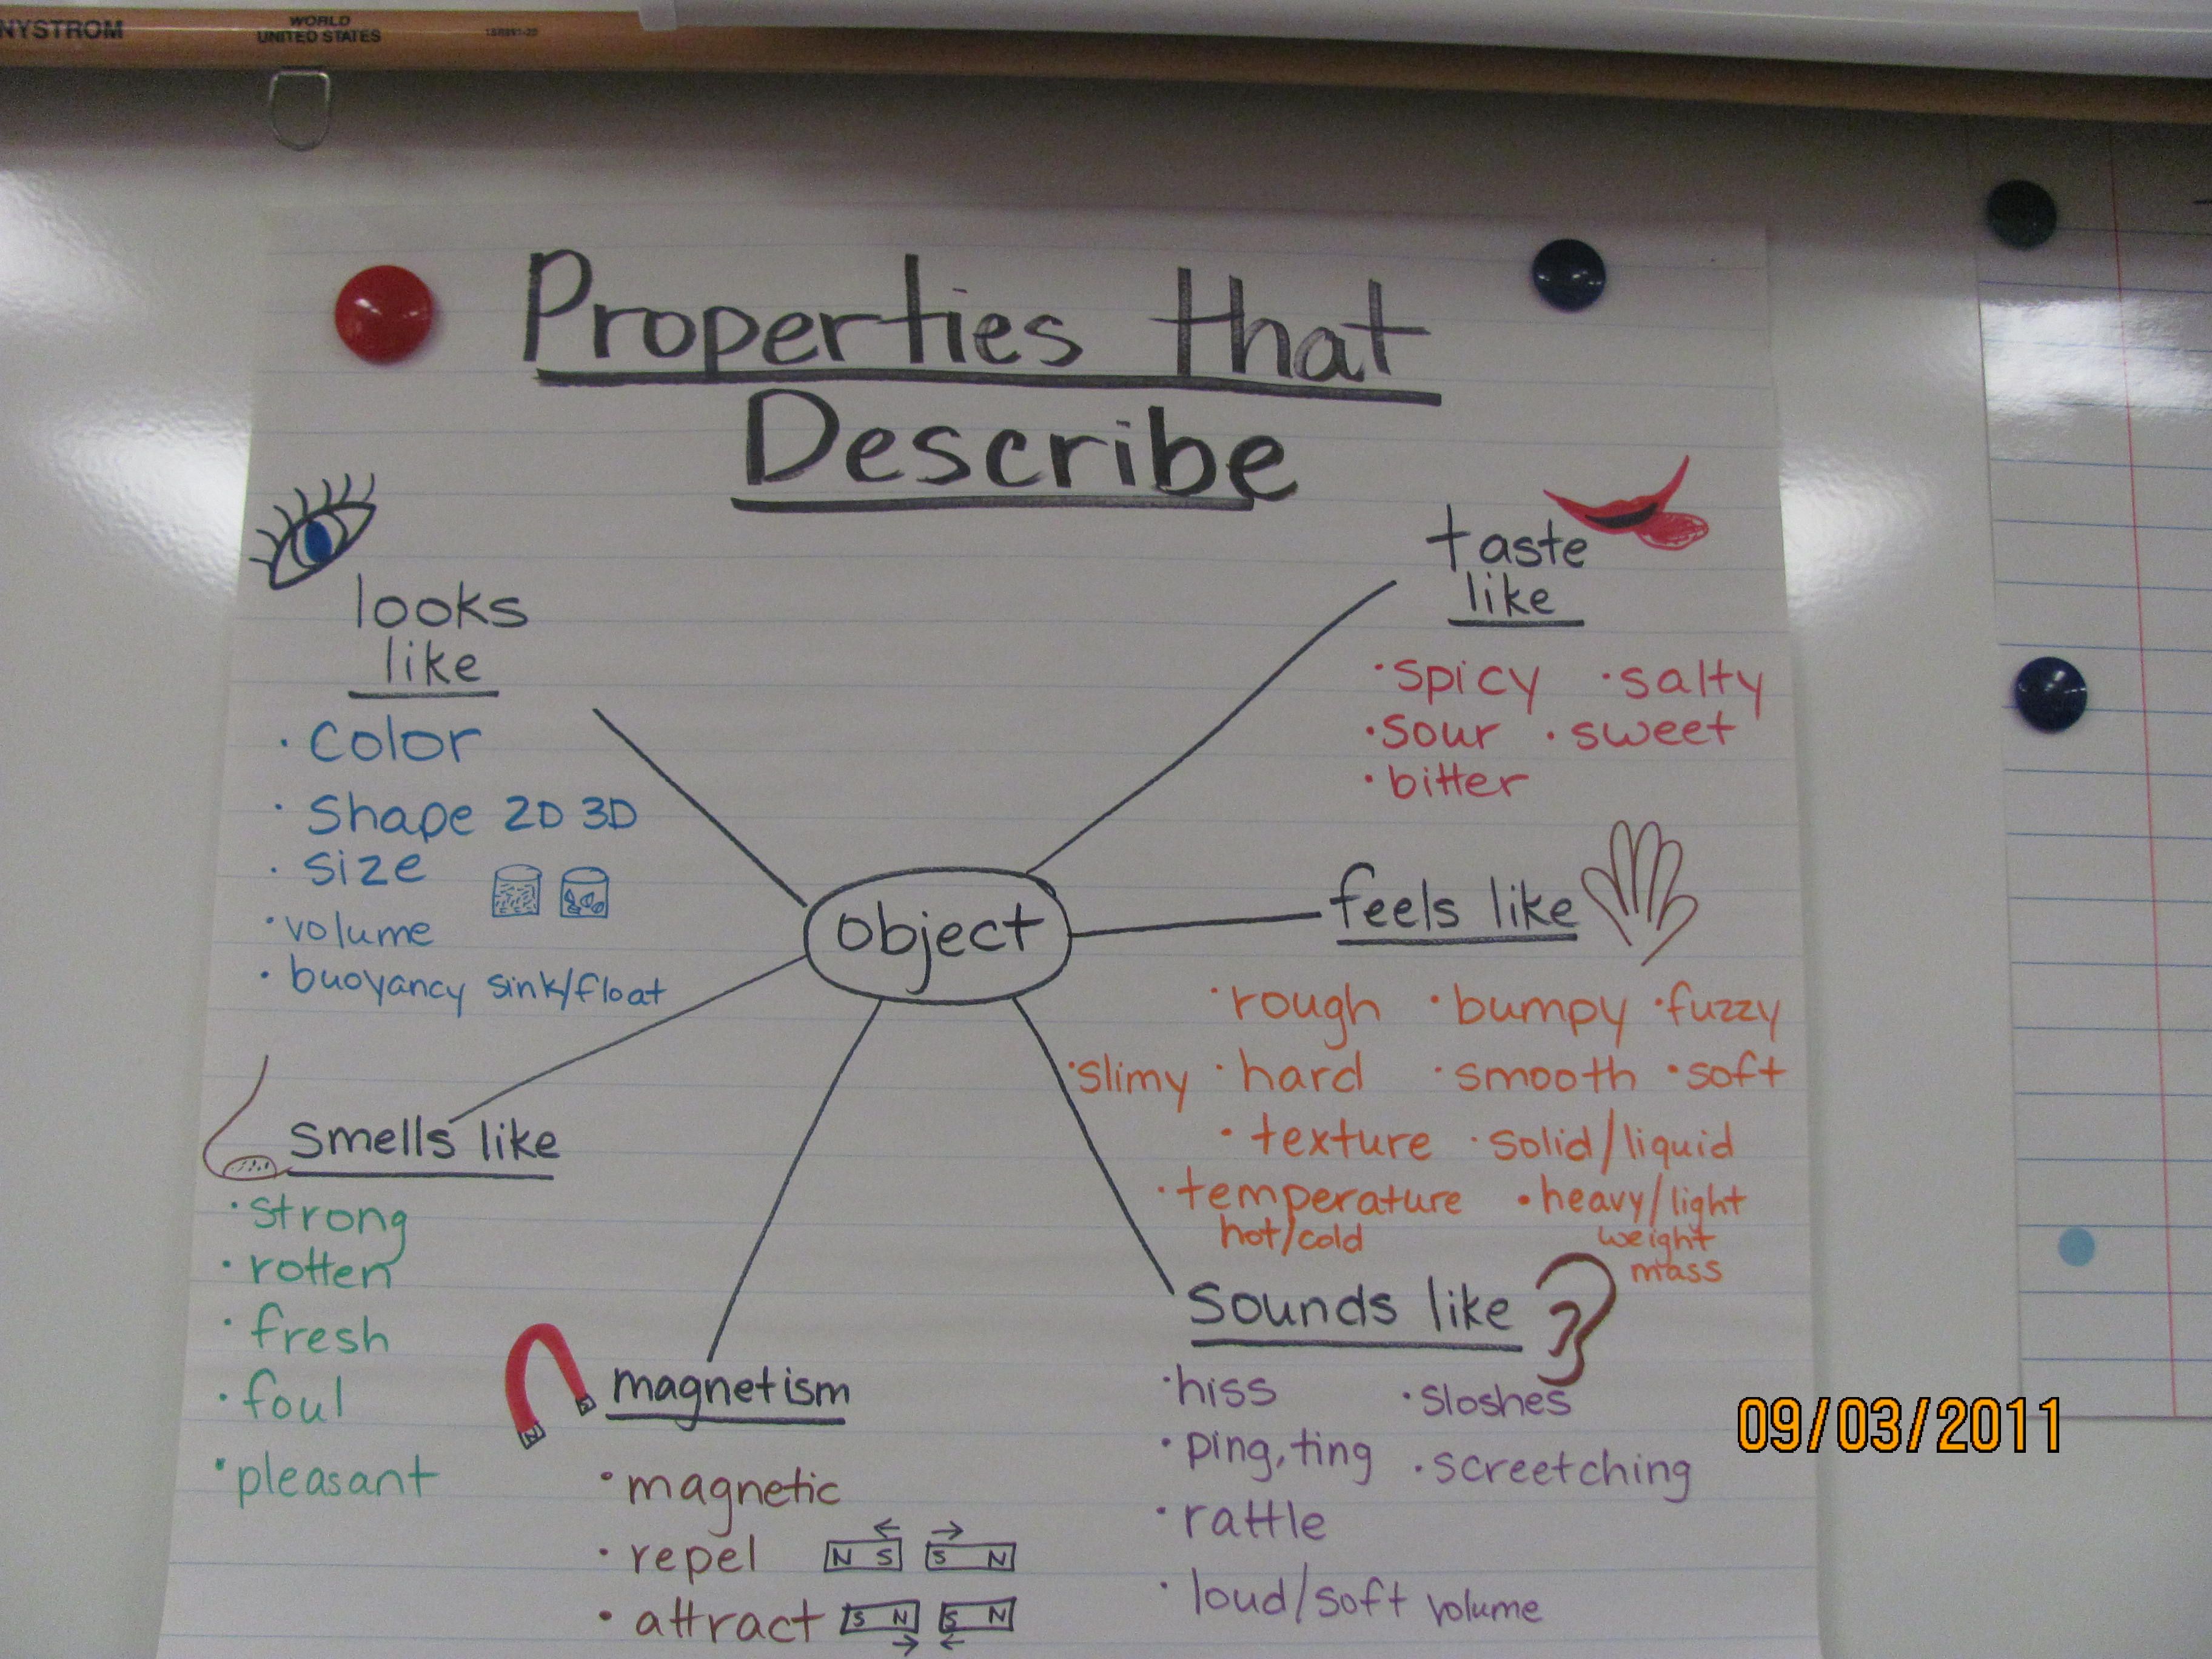 NYSTROM
WORLD
UNITED STATES
Properties that
Describe
looks
like
· color
· Shape 2D 3D
· size
· volume
· buoyancy sink/float
taste
like
· spicy · salty
· sour · sweet
· bitter
object
feels like
· rough · bumpy · fuzzy
· slimy · hard · smooth · soft
· texture · solid/liquid
· temperature · heavy/light
hot/cold weight
mass
smells like
· strong
· rotten
· fresh
· foul
· pleasant
magnetism
· magnetic
· repel N S S N
· attract S N S N
Sounds like
· hiss · sloshes
· ping, ting · screetching
· rattle
· loud/soft volume
09/03/2011